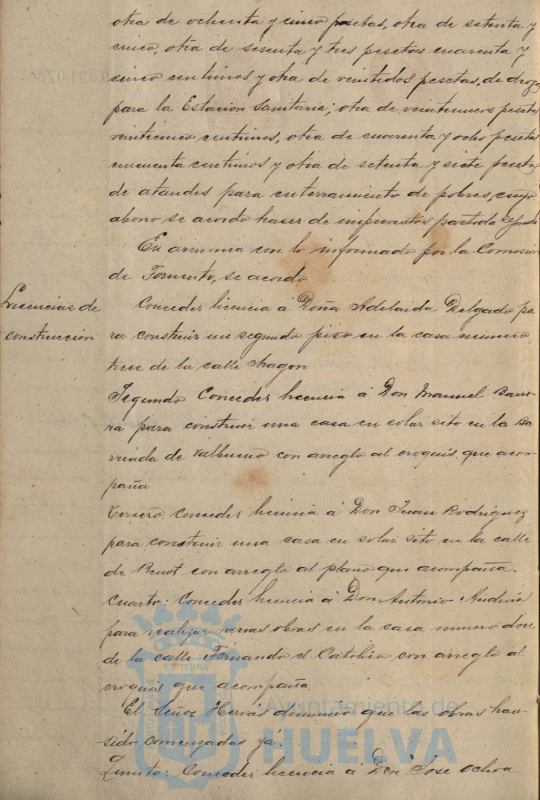 otra de ochenta y cinco pesetas, otra de setenta y
cinco, otra de sesenta y tres pesetas cuarenta y
cinco centimos y otra de veintidos pesetas, de drogas
para la Estacion Sanitaria; otra de veintinueve pesetas
veinticinco centimos, otra de cuarenta y ocho pesetas
cincuenta centimos y otra de setenta y siete pesetas
de ataudes para enterramiento de pobres, cuyo
abono se acordo hacer de imprevistos partida
En armonia con lo informado por la Comision
de Fomento, se acordo
Licencias de
construccion
Conceder licencia á Doña Adelaida Delgado pa
ra construir un segundo piso en la casa numero
trece de la calle Aragon
Segundo Conceder licencia á Don Manuel
para construir una casa en solar sito en la Ba
rriada de Valbueno con arreglo al croquis que acom
paña
Tercero. Conceder licencia á Don Juan Rodriguez
para construir una casa en solar sito en la calle
de Benot con arreglo al plano que acompaña.
Cuarto: Conceder licencia á Don Antonio
para realizar varias obras en la casa numero doce
de la calle Fernando el Catolico con arreglo al
croquis que acompaña.
El Señor Hervás denuncio que las obras han
sido comenzadas ya.
Quinto: Conceder licencia á Don José Ochoa
Ayuntamiento de
HUELVA